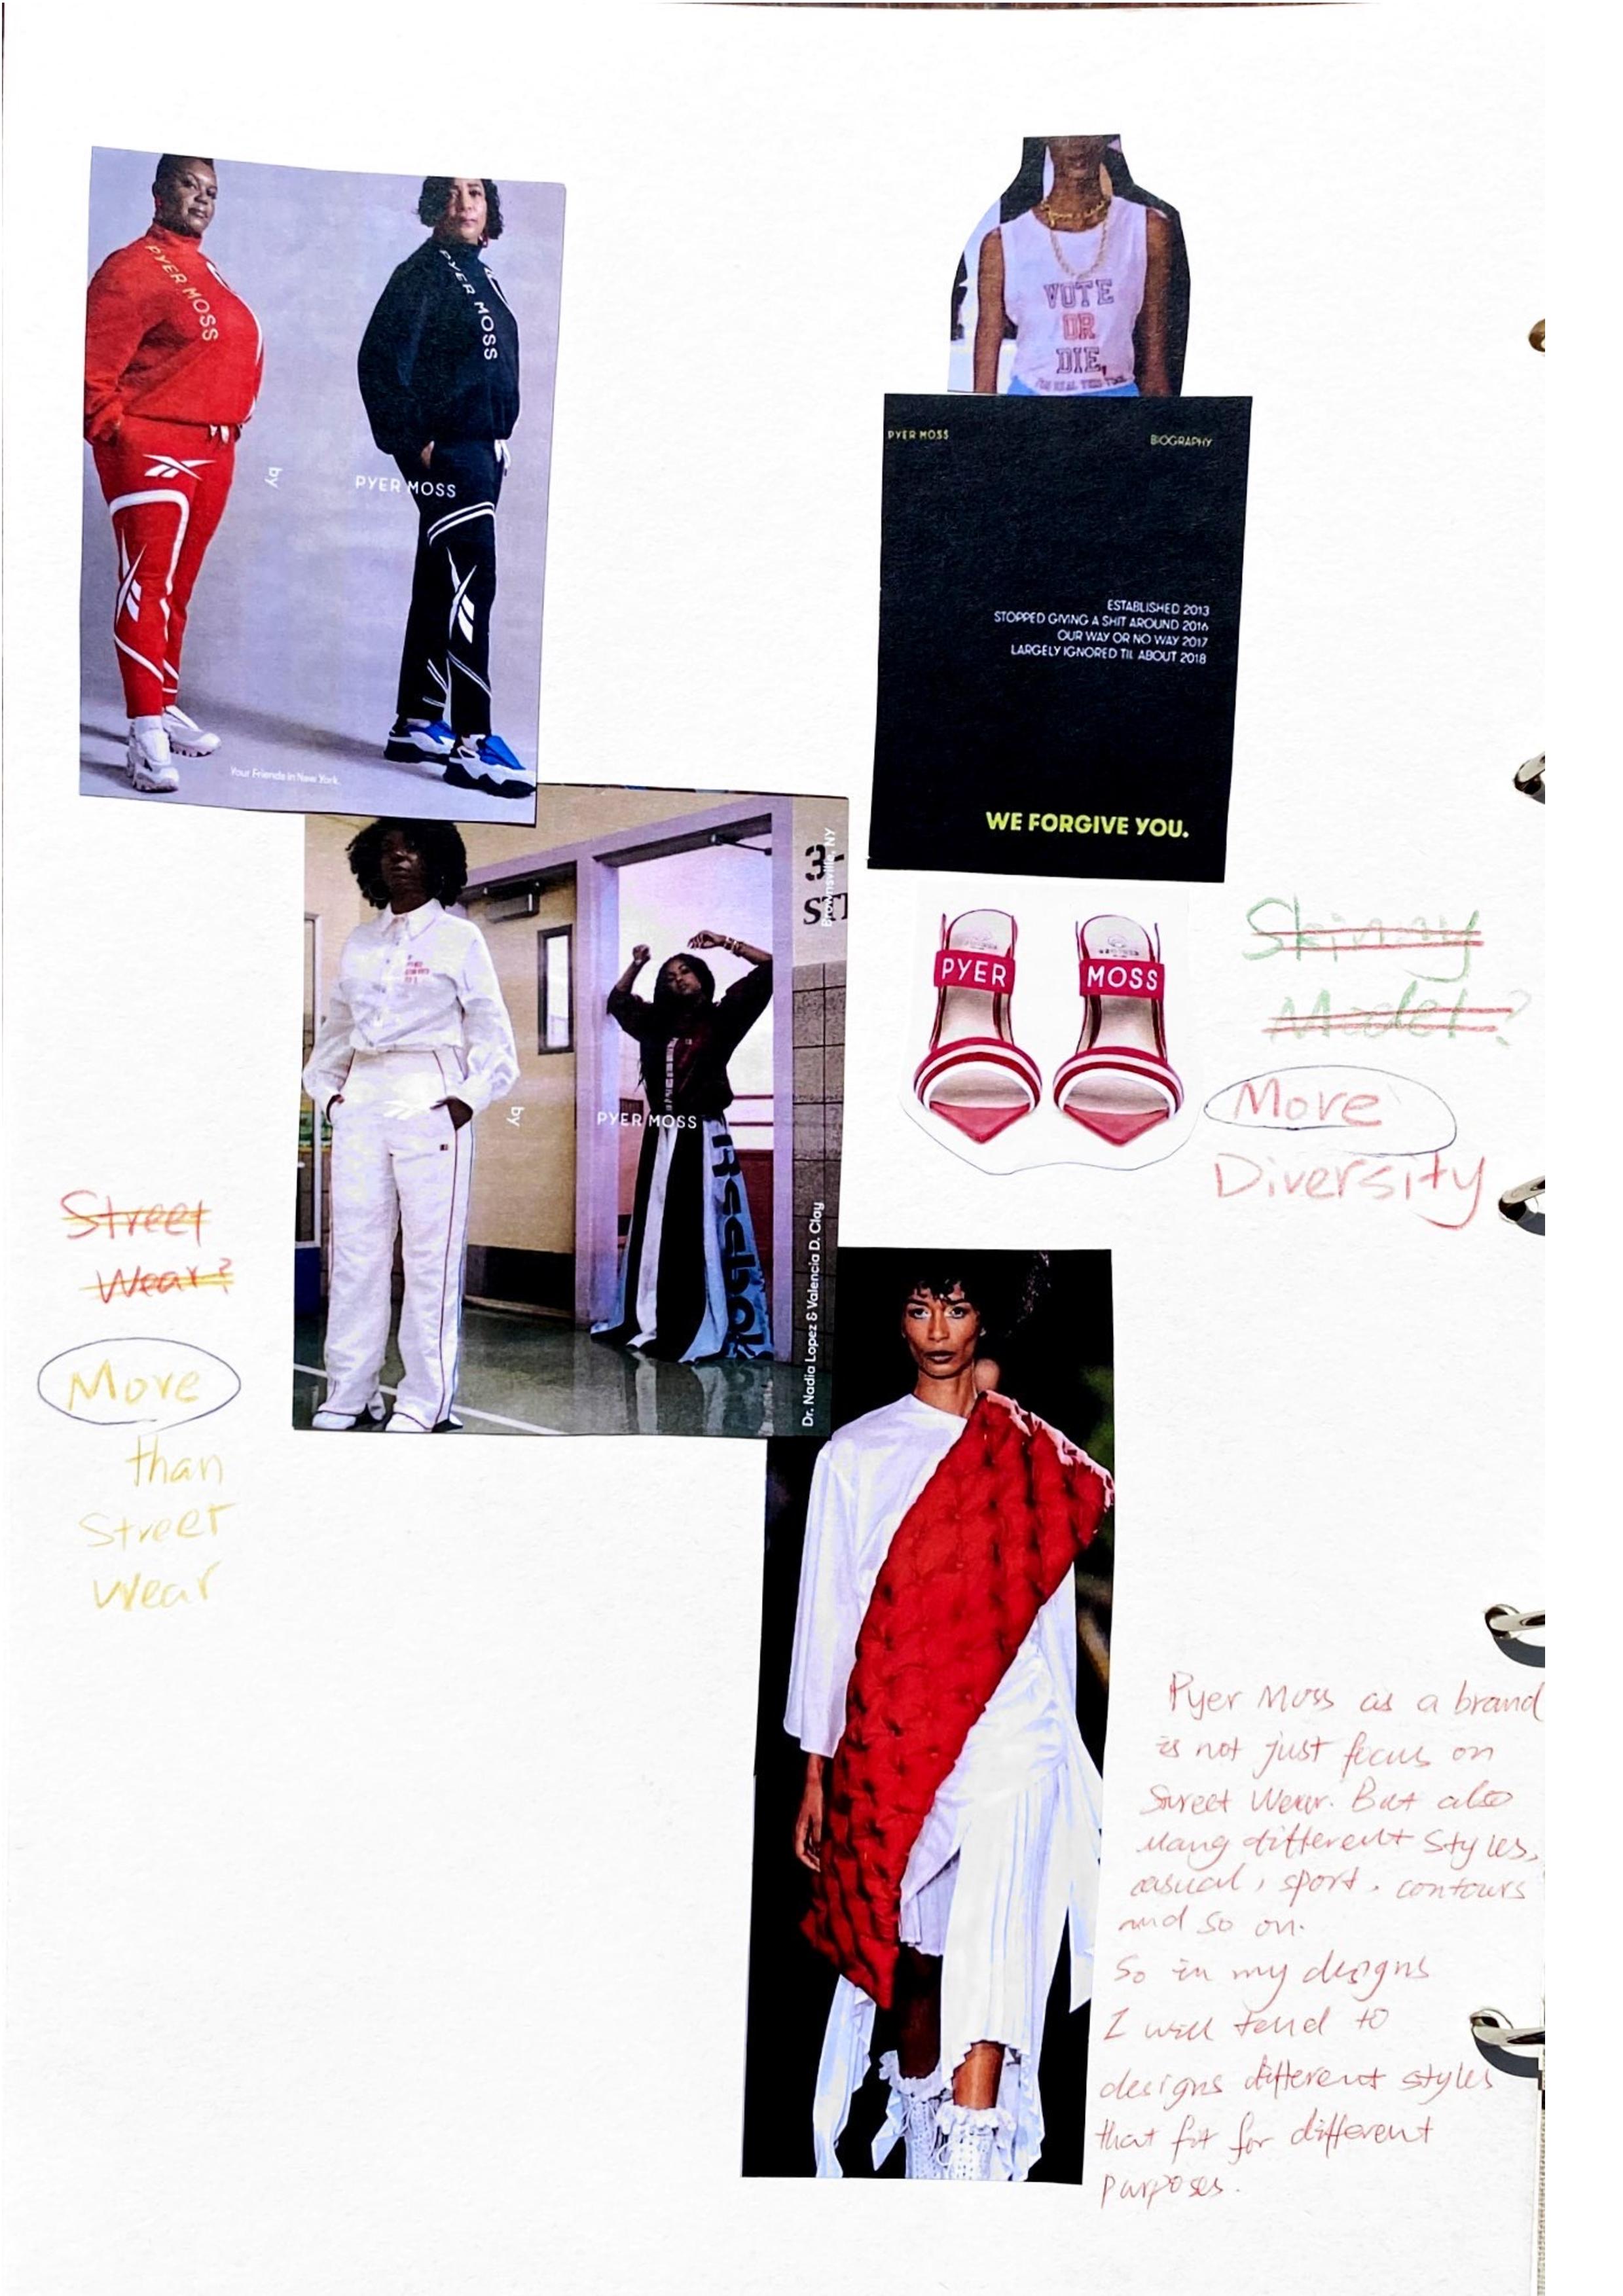 PYER MOSS
PYER MOSS
by
PYER MOSS
Your Friends in New York.
VOTE
OR
DIE,
FOR REAL THIS TIME
PYER MOSS
BIOGRAPHY
ESTABLISHED 2013
STOPPED GIVING A SHIT AROUND 2016
OUR WAY OR NO WAY 2017
LARGELY IGNORED TIL ABOUT 2018
WE FORGIVE YOU.
3-
ST
Brownsville, NY
by
PYER MOSS
Reebok
Dr. Nadia Lopez & Valencia D. Clay
PYER
MOSS
Skinny
Model?
More
Diversity
Street
Wear?
More
than
Street
wear
Pyer Moss as a brand
is not just focus on
Street Wear. But also
many different styles,
casual, sport, contours
and so on.
So in my designs
I will tend to
designs different styles
that fit for different
purposes.